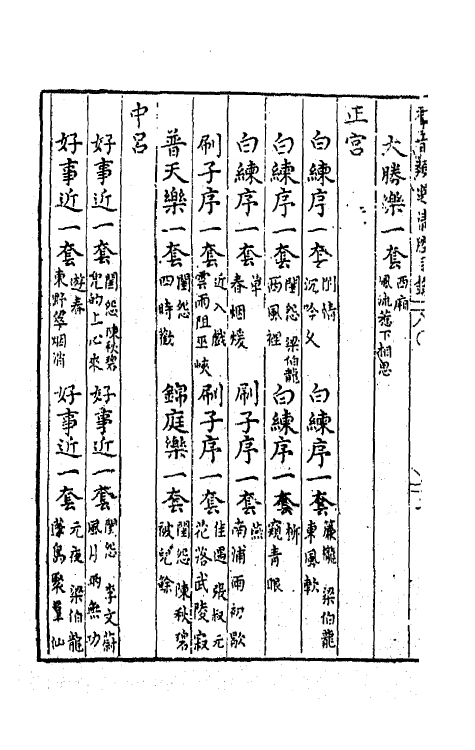 大勝樂一套 西廂 風流惹下相思
正宮
白練序一套 閨情 沉吟久
白練序一套 簾櫳 梁伯龍 東風軟
白練序一套 閨怨 梁伯龍 西風裡
白練序一套 柳 窺青眼
白練序一套 單 春烟煖
刷子序一套 燕 南浦雨初歇
刷子序一套 近入戲 雲雨阻巫峽
刷子序一套 佳遇 張叔元 花落武陵寂
普天樂一套 閨怨 四時歡
錦庭樂一套 閨怨 陳秋碧 被兒餘
中呂
好事近一套 閨怨 陳秋碧 兜的上心來
好事近一套 閨怨 李文蔚 風月兩無功
好事近一套 遊春 東野翠烟消
好事近一套 元夜 梁伯龍 蓬島聚羣仙